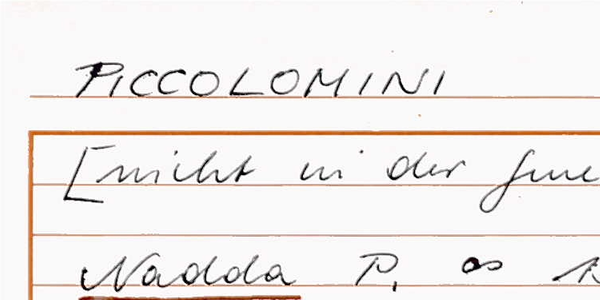 PICCOLOMINI
[nicht in der
Nadda P. ∞